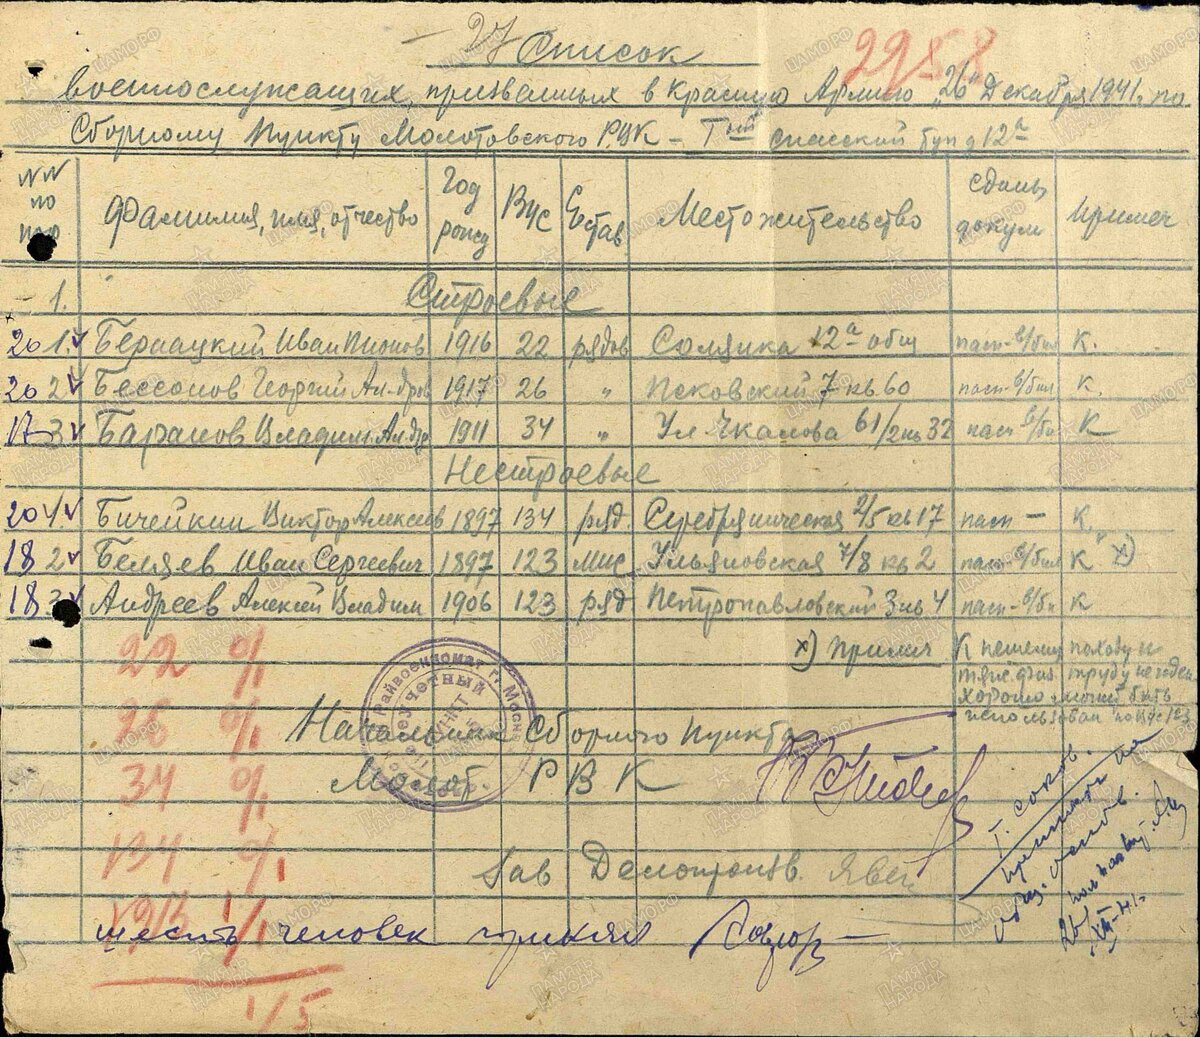 27
2258
Список
военнослужащих, призванных в Красную Армию "26" Декабря 1941г. по
Сборному Пункту Молотовского РВК - Тетинский туп д 12а
№№ по пор | Фамилия, имя, отчество | Год рожд | ВУС | Состав | Местожительство | сдань докум | примеч
1. Строевые
20 1. Бернацкий Иван 1916 22 рядов Солянка 12а общ пасп-в/бил К.
20 2 Бессонов Георгий Ал-дров 1917 26 " Псковский 7 кв 60 пасп-в/бил К.
17 3 Баранов Владим. Ал-др 1911 34 " Ул Чкалова 61/2 кв 32 пасп в/би К
Нестроевые
20 1. Бичейкин Виктор Алексеев 1897 134 ряд. Серебряническая 2/5 кв 17 пасп - К.
18 2 Беляев Иван Сергеевич 1897 123 Ульяновская 7/8 кв 2 пасп-в/бил К х)
18 3 Андреев Алексей Владим 1906 123 ряд Петропавловский 3 кв 4 пасп-в/би К
х) Примеч К пешему походу и
физ. труду не годен
хорошо может быть
использован по ВУС 123
22 0/1
26 0/1
34 0/1
134 0/1
123 1/1
1/5
Райвоенкомат г. Москвы
Начальник Сборного Пункта
Молот. РВК
Зав
шесть человек принял
Т. соков.
26/XII-41г.